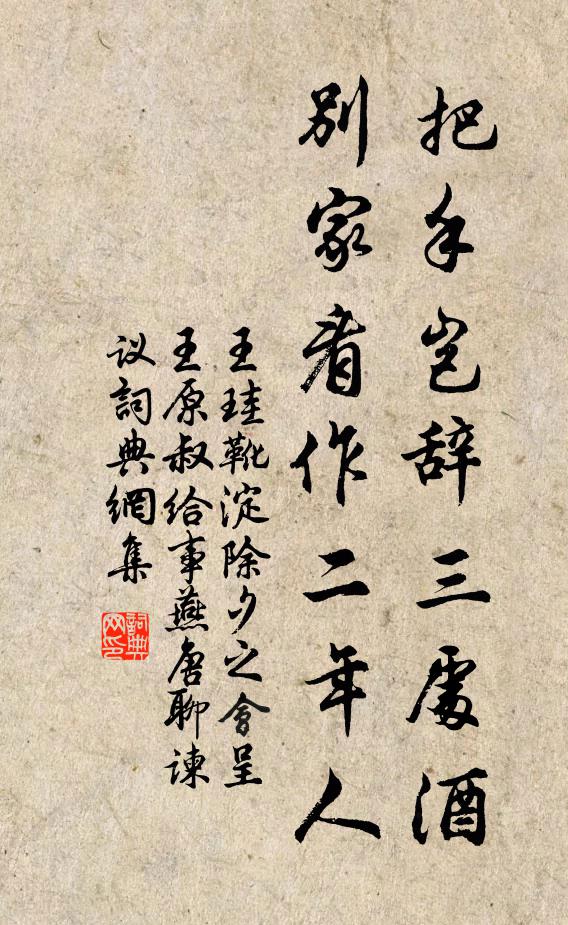 把手岂辞三處酒
別家看作二年人
王珪靴淀除夕之會呈
王原叔给事燕唐聊諫
议詞典網集
詞典网印